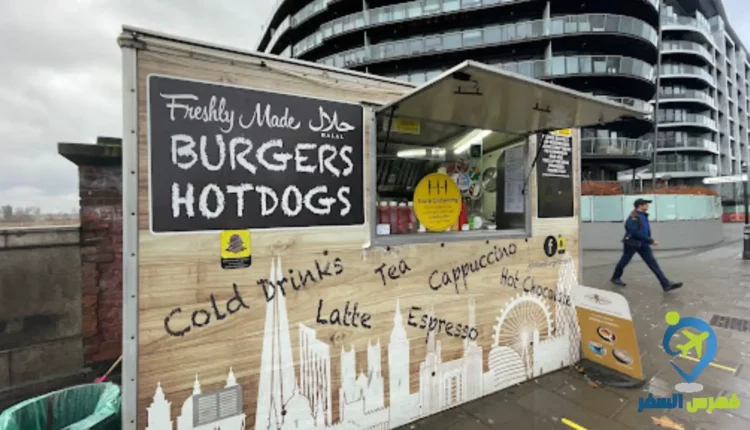 Freshly Made حلال
HALAL
BURGERS
HOTDOGS
Cold Drinks
Tea
Cappuccino
Hot Chocolate
Latte
Espresso
فهرس السفر